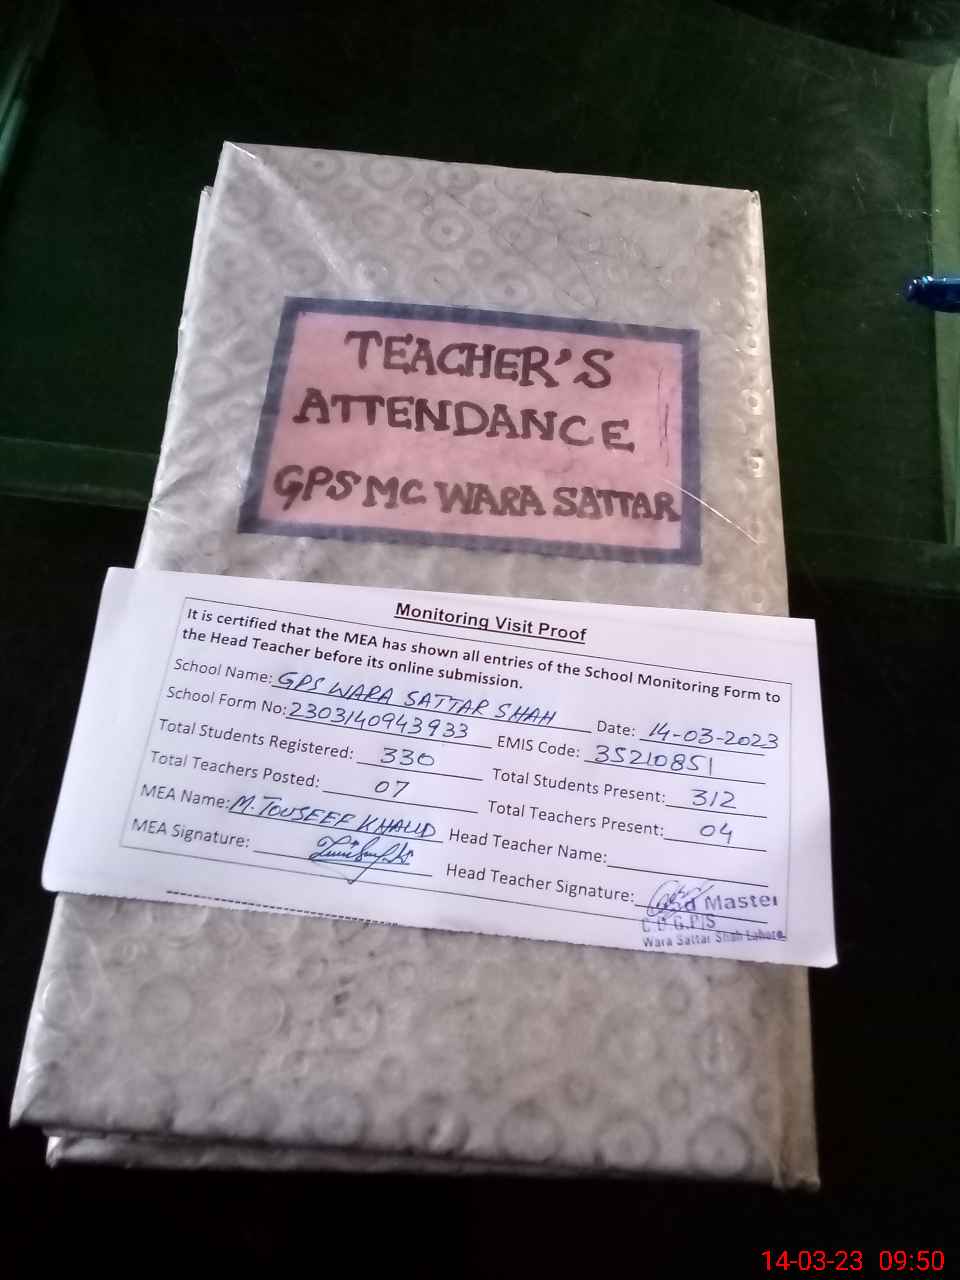 TEACHER'S
ATTENDANCE
GPS MC WARA SATTAR
Monitoring Visit Proof
It is certified that the MEA has shown all entries of the School Monitoring Form to
the Head Teacher before its online submission.
School Name: GPS WARA SATTAR SHAH Date: 14-03-2023
School Form No: 2303140943933 EMIS Code: 35210851
Total Students Registered: 330 Total Students Present: 312
Total Teachers Posted: 07 Total Teachers Present: 04
MEA Name: M. TOUSEEF KHALID Head Teacher Name:
MEA Signature: Head Teacher Signature:
Master
C.D.G.P/S
Wara Sattar Shah Lahore
14-03-23 09:50